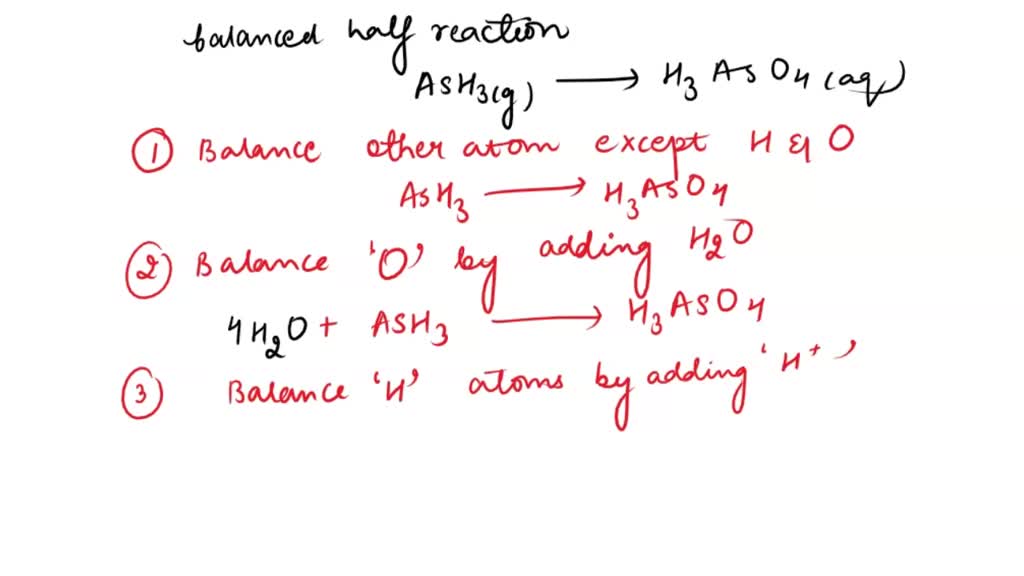 balanced half reaction
AsH3(g) → H3AsO4(aq)
① Balance other atom except H & O
AsH3 → H3AsO4
② Balance 'O' by adding H2O
4H2O + AsH3 → H3AsO4
③ Balance 'H' atoms by adding 'H+'